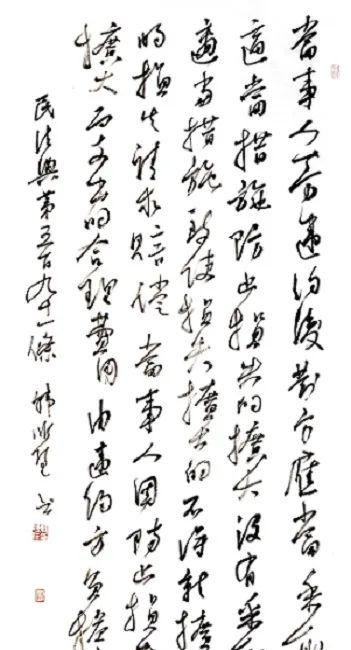 當事人一方違約後對方應當采
適當措施防止損失的擴大没有采
適当措施致使損失擴大的不得就擴
的損失請求賠償當事人因防止損
擴大而支出的合理費用由違約方負擔
民法典第五百九十一條 书